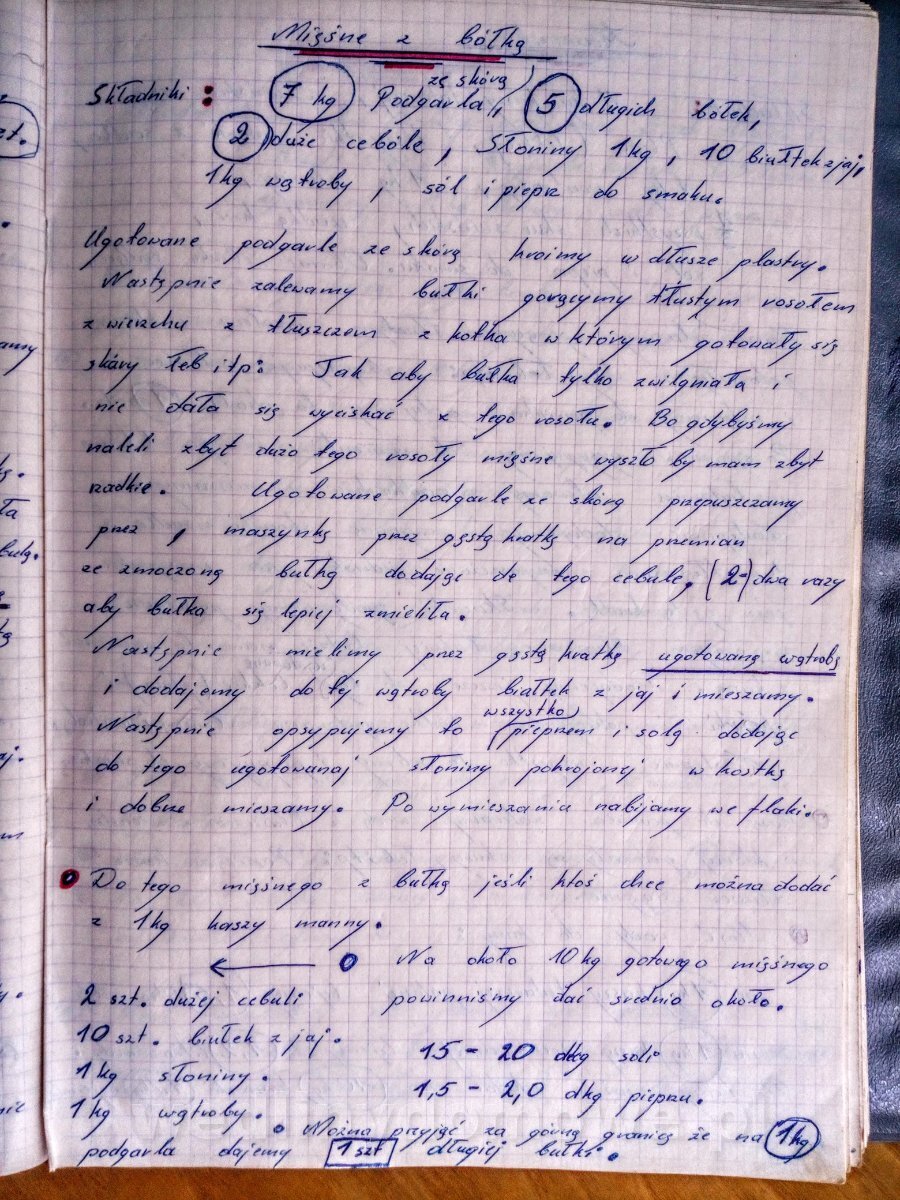 Mięsne z bółką
Składniki : 7 kg Podgarla ze skórą, 5 długich bółek,
2 duże cebóle, Słoniny 1kg, 10 biułtek z jaj,
1kg wątroby, sól i pieprz do smaku.
Ugotowane podgarle ze skórą kroimy w dłusze plastry.
Następnie zalewamy bułki gorącymy tłustym rosołem
z wierzchu z tłuszczem z kotka w którym gotowały się
skóry łeb itp: Tak aby bułka tylko zwilgniała i
nie dała się wyciskać z tego rosołu. Bo gdybyśmy
naleli zbyt dużo tego rosoły mięsne wyszło by mam zbyt
radkie. Ugotowane podgarle ze skórą przepuszczamy
przez , maszynkę przez gęstą kratkę na premian
ze zmoczoną bułką dodając do tego cebule, (2-) dwa razy
aby bułka się lepiej zmieliła.
Następnie mielimy przez gęstą kratkę ugotowaną wątrobę
i dodajemy do tej wątroby białtek z jaj i mieszamy.
Następnie opsypujemy to wszystko pieprzem i solą dodając
do tego ugotowanaj słoniny pokrojonej w kostkę
i dobrze mieszamy. Po wymieszaniu nabijamy we flaki.
Do tego mięsnego z bułką jeśli ktoś chce można dodać
z 1kg kaszy manny.
← o Na około 10kg gotowego mięsnego
2 szt. dużej cebuli powinniśmy dać srednio około.
10 szt. biułek z jaj. 15 - 20 dkg soli
1kg słoniny. 1,5 - 2,0 dkg pieprzu.
1kg wątroby. • Można przyjąć za górną granicę że na 1kg
podgarla dajemy 1szt długiej bułki.